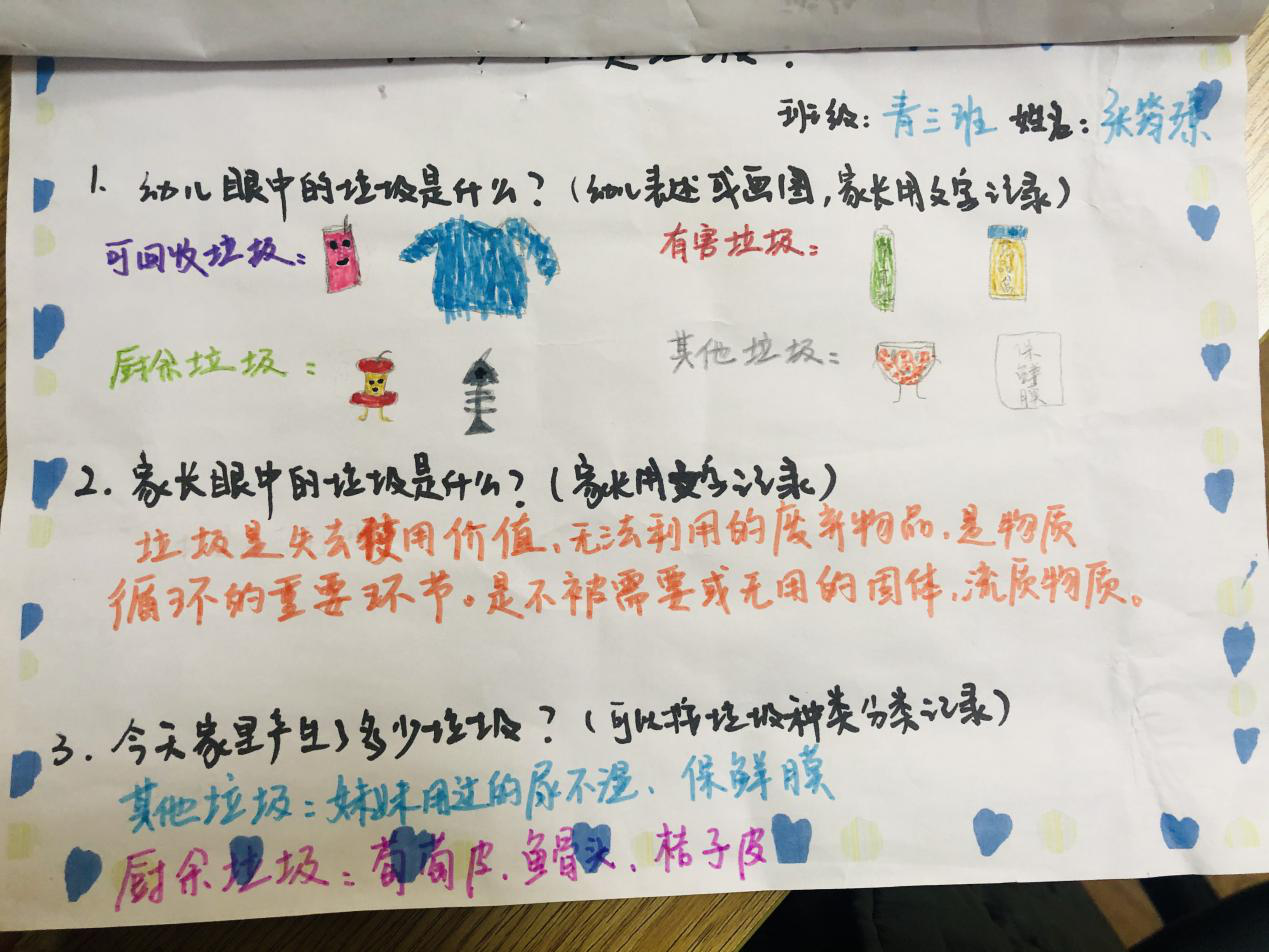 是垃圾?
班级: 青三班 姓名: 张
1. 幼儿眼中的垃圾是什么?(幼儿表述或画图,家长用文字记录)
可回收垃圾: 有害垃圾:
厨余垃圾: 其他垃圾:
保鲜膜
2. 家长眼中的垃圾是什么?(家长用文字记录)
垃圾是失去使用价值、无法利用的废弃物品,是物质
循环的重要环节。是不被需要或无用的固体、流质物质。
3. 今天家里产生了多少垃圾?(可以按垃圾种类分类记录)
其他垃圾:妹妹用过的尿不湿、保鲜膜
厨余垃圾:葡萄皮、鱼骨头、桔子皮